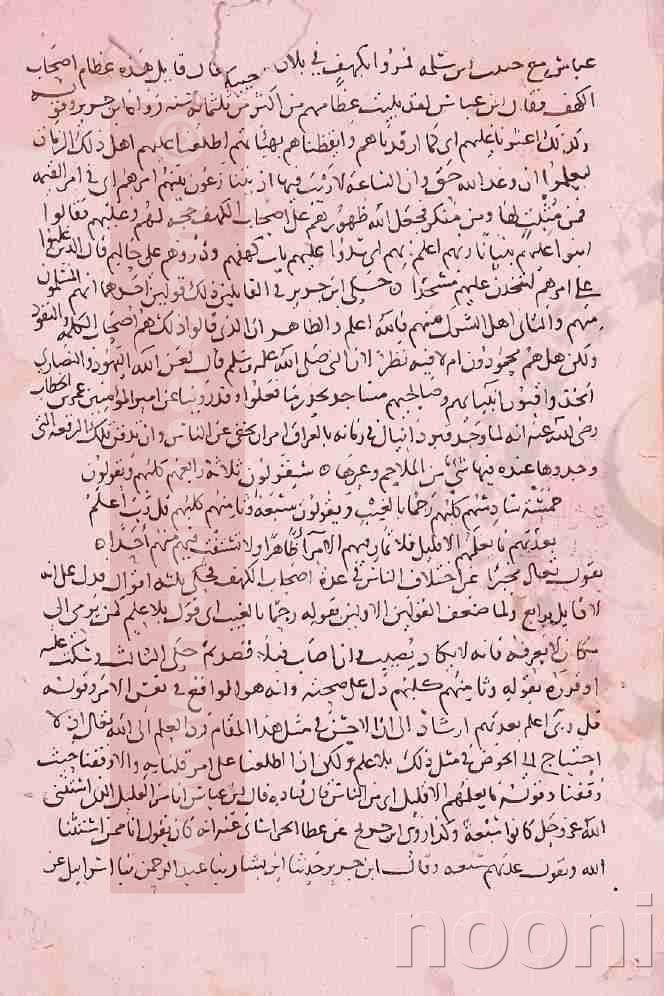 عباس مع حبيب ابن مسلمة فمروا بكهف في بلاد فقال قائل هذه عظام اصحاب
الكهف فقال ابن عباس لقد بليت عظامهم من اكثر من ثلثمائة سنة رواه ابن جرير وقوله
وكذلك اعثرنا عليهم اي كما ارقدناهم وايقظناهم بهيآتهم اطلعنا عليهم اهل ذلك الزمان
ليعلموا ان وعد الله حق وان الساعة لا ريب فيها اذ يتنازعون بينهم امرهم اي في امر القيمة
فمن مثبت لها ومن منكر فجعل الله ظهورهم على اصحاب الكهف حجة لهم وعليهم فقالوا
ابنوا عليهم بنيانا ربهم اعلم بهم اي سدوا عليهم باب كهفهم وذروهم على حالهم قال الذين غلبوا
على امرهم لنتخذن عليهم مسجدا حكى ابن جرير في القائلين ذلك قولين احدهما انهم المسلمون
منهم والثاني اهل الشرك منهم فالله اعلم والظاهر ان الذين قالوا ذلك هم اصحاب الكلمة والنفوذ
ولكن هل هم محمودون ام لا فيه نظر لان النبي صلى الله عليه وسلم قال لعن الله اليهود والنصارى
اتخذوا قبور انبيائهم وصالحيهم مساجد يحذر ما فعلوا وقد روينا عن امير المؤمنين عمر بن الخطاب
رضي الله عنه انه لما وجد قبر دانيال في زمانه بالعراق امر ان يخفى عن الناس وان تدفن تلك الرقعة التي
وجدوها عنده فيها شي من الملاحم وغيرها سيقولون ثلاثة رابعهم كلبهم ويقولون
خمسة سادسهم كلبهم رجما بالغيب ويقولون سبعة وثامنهم كلبهم قل ربي اعلم
بعدتهم ما يعلمهم الا قليل فلا تمار فيهم الا مرآء ظاهرا ولا تستفت فيهم منهم احدا
يقول تعالى مخبرا عن اختلاف الناس في عدة اصحاب الكهف فحكى ثلثة اقوال فدل على انه
لا قائل برابع ولما ضعف القولين الاولين بقوله رجما بالغيب اي قول بلا علم كمن يرمي الى
مكان لا يعرفه فانه لا يكاد يصيب وان اصاب فبلا قصد ثم حكى الثالث وسكت عليه
او قرره بقوله وثامنهم كلبهم دل على صحته وانه هو الواقع في نفس الامر وقوله
قل ربي اعلم بعدتهم ارشاد الى ان الاحسن في مثل هذا المقام رد العلم الى الله تعالى اذ لا
احتياج الى الخوض في مثل ذلك بلا علم ولكن اذا اطلعنا على امر قلنا به والا وقفنا حيث
وقفنا وقوله ما يعلمهم الا قليل اي من الناس قال قتادة قال ابن عباس انا من القليل الذي استثنى
الله عز وجل كانوا سبعة وكذا روى ابن جريج عن عطا الخراساني عنه انه كان يقول انا ممن استثنى
الله ويقول عدتهم سبعة وقال ابن جرير حدثنا ابن بشار ثنا عبد الرحمن ثنا اسرائيل عن
nooni